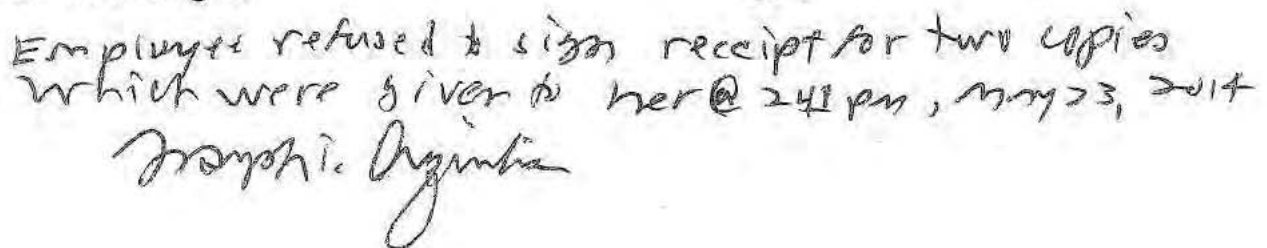 Employee refused to sign receipt for two copies
which were given to her @ 241 pm, May 23, 2014